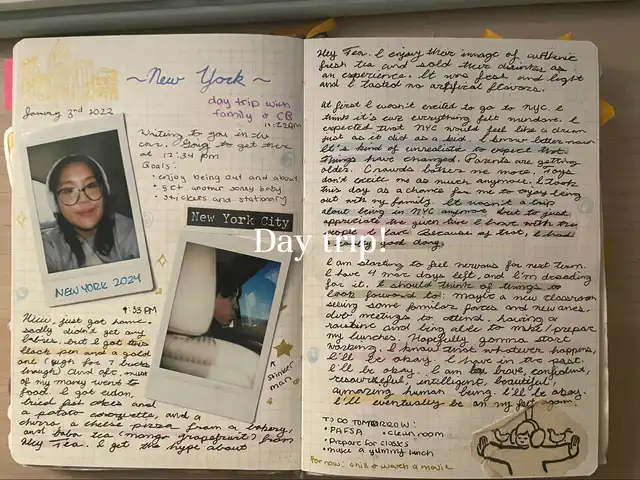 ~New York~
day trip with
family & CB
January 3rd 2022
Writing to you in the
car. Going to get there
at 12:34 pm
Goals:
• enjoy being out and about
• get another sonny baby
• stickers and stationary
New York City
Day trip!
NEW YORK 2024
9:33 PM
Hiii, just got home.
sadly didn't get any
babies. but I got this
black pen and a gold
one (ugh for 7 bucks
tough) And oft, most
of my money went to
food. I got udon,
fried fish cakes and
a potato croquette, and a
churro a cheese pizza from a bakery,
and boba tea (mango grapefruit) from
Hey Tea. I get the hype about
man
Hey Tea. I enjoy their image of authentic
fresh tea and sold their drinks as
an experience. It was fresh and light
and I tasted no artificial flavors.
At first I wasn't excited to go to NYC. I
think it's cuz everything felt mundane. I
expected that NYC would feel like a dream
just as it did as a kid. I know better now
it's kind of unrealistic to expect that.
Things have changed. Parents are getting
older. Crowds bother me more, toys
don't excite me as much anymore. I took
this day as a chance for me to enjoy being
out with my family. It wasn't a trip
about being in NYC anymore but to just
appreciate the given time I have with the
people I have. Because of that, I had
good day.
I am starting to feel nervous for next term.
I have 4 more days left, and I'm dreading
for it. I should think of things to
look forward to: maybe a new classroom
seeing some familiar faces and new ones,
club meetings to attend. Having a
routine and being able to make/prepare
my lunches. Hopefully gonna start
working. I know that whatever happens,
I'll be okay. I have in the past.
I'll be okay. I am brave, confident,
resourceful, intelligent, beautiful,
amazing human being. I'll be okay.
I'll eventually be on my feet again.
TO DO TOMORROW:
• FAFSA
• Clean room
• Prepare for classes
• make a yummy lunch
For now: chill & watch a movie